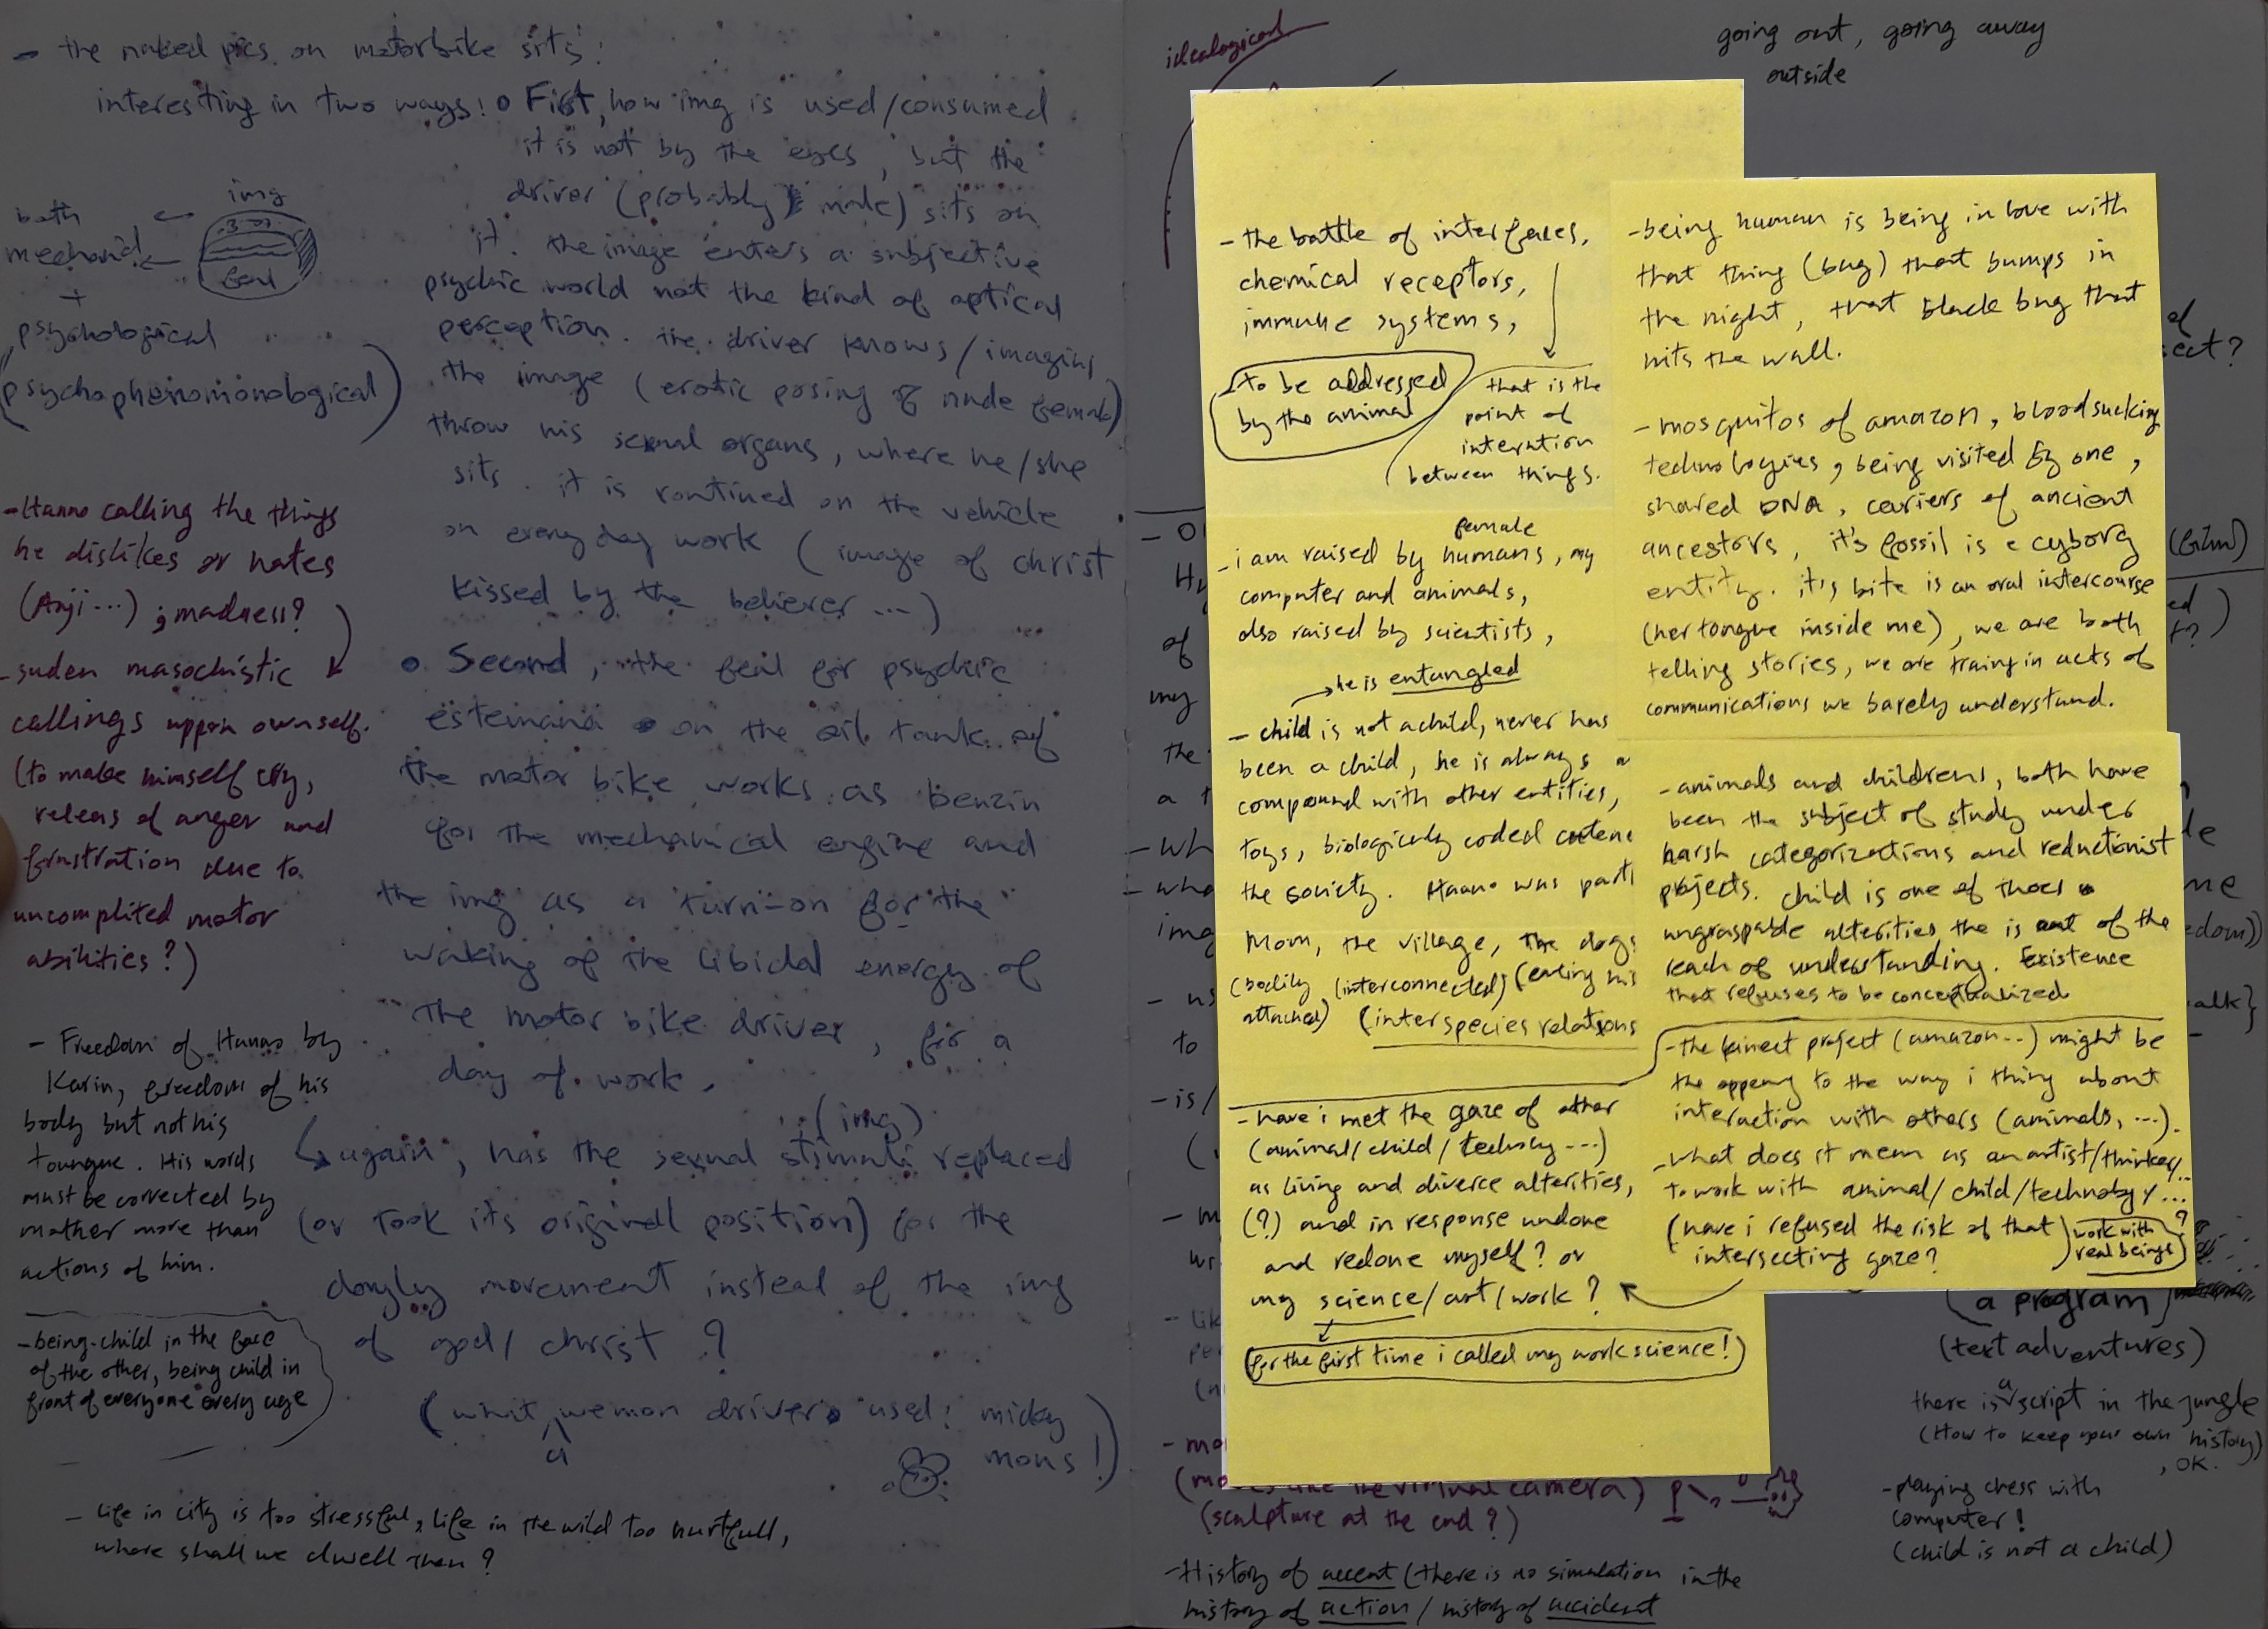 - the naked pics on motorbike sits:
interesting in two ways! o First, how img is used/consumed
it is not by the eyes, but the
driver (probably male) sits on
it. the image enters a subjective
psychic world not the kind of optical
perception. the driver knows/imagins
the image (erotic posing of nude female)
throw his sexual organs, where he/she
sits. it is routined on the vehicle
on every day work (image of christ
kissed by the believer ...)
o Second, the feul for psychic
on the oil tank of
the motor bike works as benzin
for the mechanical engine and
the img as a turn-on for the
waking of the libidal energy of
the motor bike driver, for a
day of work.
(img)
again, has the sexual stimuli replaced
(or took its original position) for the
movement instead of the img
of god/christ?
(what a wemon drivers used: micky
mous!)
img
both
mechanical
+
psychological
(psychophenomonological)
feul
- Hanno calling the things
he dislikes or hates
(Anji...) ; madness?
- suden masochistic
callings uppon ownself.
(to make himself cry,
releas of anger and
frustration due to
uncomplited motor
abilities?)
- Freedom of Hanno by
Karin, freedom of his
body but not his
toungue. His words
must be corrected by
mother more than
actions of him.
- being-child in the face
of the other, being child in
front of everyone every age
- life in city is too stressful, life in the wild too hurtfull,
where shall we dwell then?
idealogical
going out, going away
outside
- the battle of interfaces,
chemical receptors,
immune systems,
to be addressed
by the animal
that is the
point of
interation
between things.
female
- i am raised by humans, my
computer and animals,
also raised by scientists,
he is entangled
- child is not a child, never has
been a child, he is always a
compound with other entities,
toys, biologicaly coded
the society. Hanno was part
Mom, the village, the dogs
(bodily (interconnected) (eating his
attached) (interspecies relations
- have i met the gaze of other
(animal/child/techoly ...)
as living and diverce alterities,
(?) and in response undone
and redone myself? or
my science/art/work?
for the first time i called my work science!
- being human is being in love with
that thing (bug) that bumps in
the night, that black bug that
hits the wall.
- mosquitos of amazon, bloodsucking
technologies, being visited by one,
shared DNA, cariers of ancient
ancestors, it's fossil is a cyborg
entity. it's bite is an oral intercourse
(her tongue inside me), we are both
telling stories, we are traing in acts of
communications we barely understand.
- animals and childrens, both have
been the subject of study under
harsh categorizations and reductionist
projects. child is one of thoes
ungraspable alterities the is out of the
reach of understanding. Existence
that refuses to be conceptualized
- the kinect project (amazon..) might be
the to the way i thing about
interaction with others (animals, ...).
- what does it mean as an artist/thinker/..
to work with animal/child/technology...?
(have i refused the risk of that
intersecting gaze?)
work with
real beings
a program
(text adventures)
there is a script in the jungle
(How to keep your own history)
, OK.
- playing chess with
computer!
(child is not a child)
the virtual camera)
(sculpture at the end?)
- History of accent (there is no simulation in the
history of action / history of accident